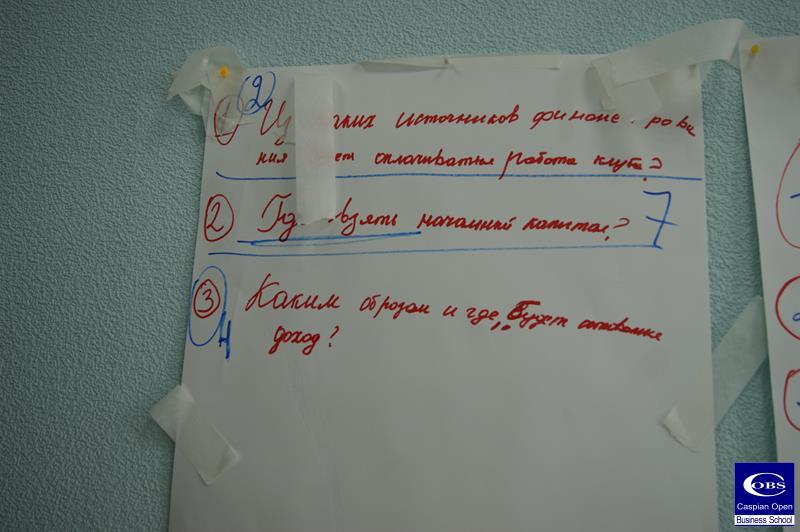 2
1) Из каких источников финансирова
ния будет оплачиваться работа клуба?
2 Где взять начальный капитал? 7
3 Каким образом и где, будет
4 доход?
COBS
Caspian Open
Business School